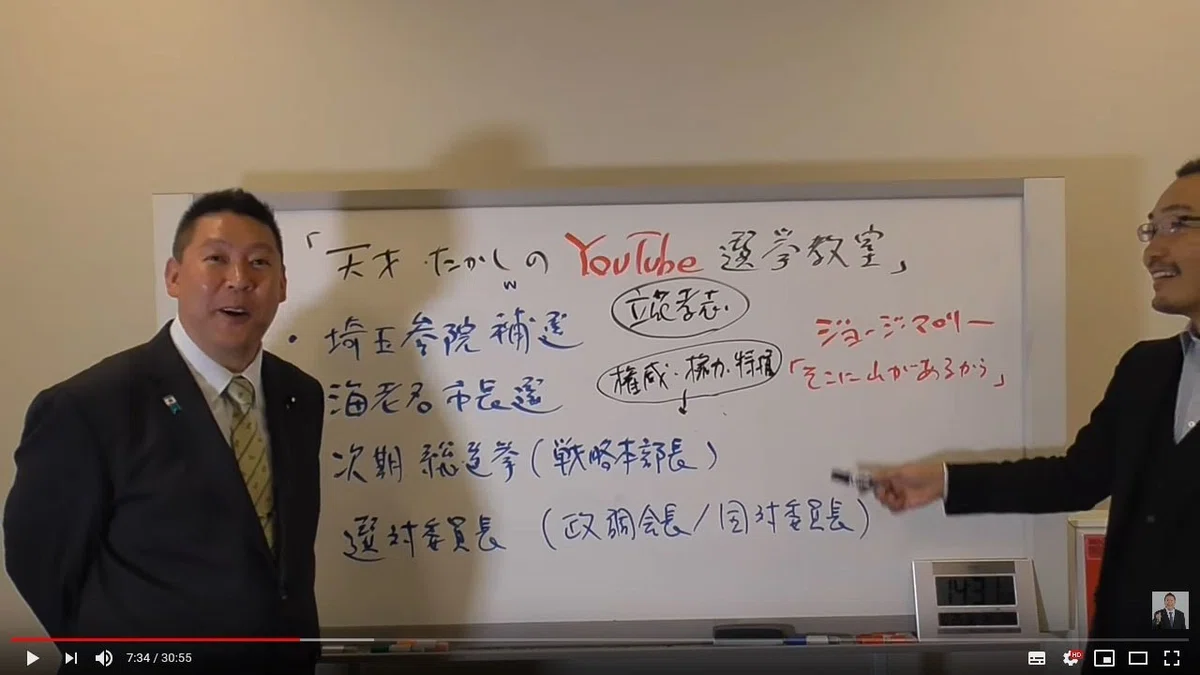 「天才たかしの YouTube 選挙教室」
w
立花孝志
・埼玉参院補選
ジョージマロリー
権威・権力・特権
「そこに山があるから」
海老名市長選
次期総選挙(戦略本部長)
選対委員長 (政調会長/国対委員長)
1431
7:34 / 30:55
HD